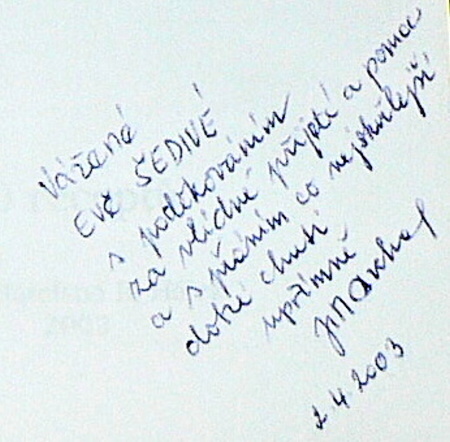 Vážené
EVĚ ŠEDIVÉ
s poděkováním
za vlídné přijetí a pomoc
a s přáním co nejskvělejší
dobré chuti
upřímně
2.4.2003